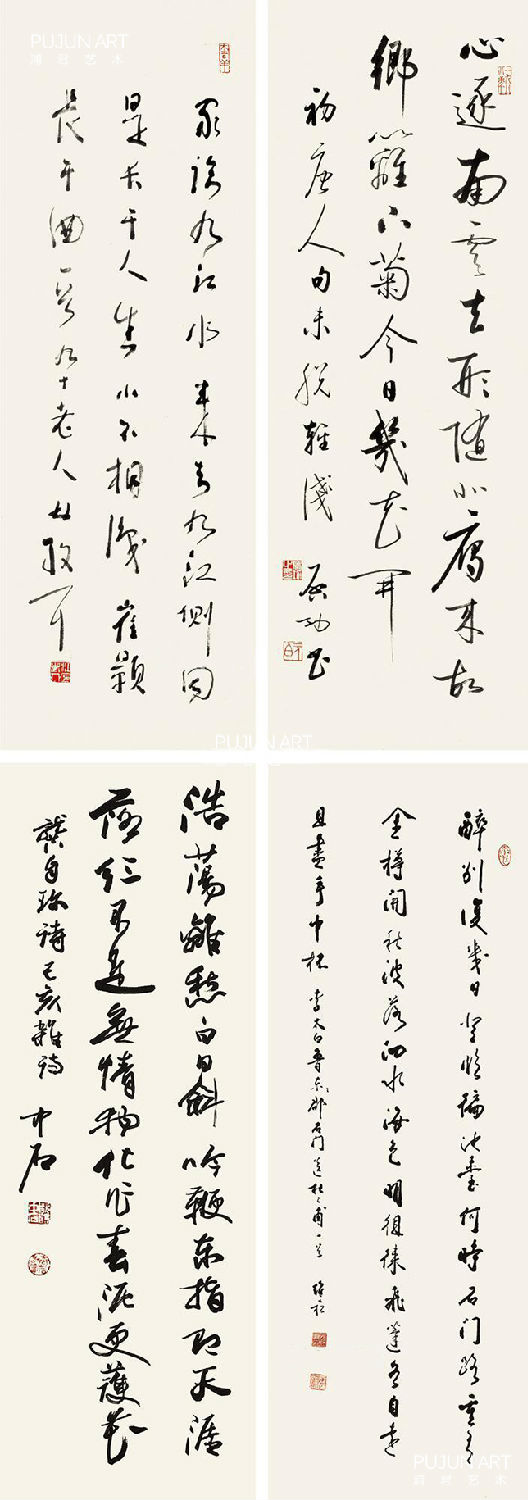 PUJUN ART
心逐南云去形随北雁来故
乡篱下菊今日几花开
初唐人句未脱离浅 启功书
家临九江水来去九江侧同
是长干人生小不相识 崔颢
长干曲一首 九十老人
浩荡离愁白日斜吟鞭东指即天涯
落红不是无情物化作春泥更护花
龚自珍诗己亥杂诗 中石
醉别复几日登临徧池台何时石门路重有
金樽開秋波落泗水海色明徂徕飛蓬各自遠
且盡手中杯 李太白魯郡東石門送杜二甫一首
PUJUN ART
PUJUN ART